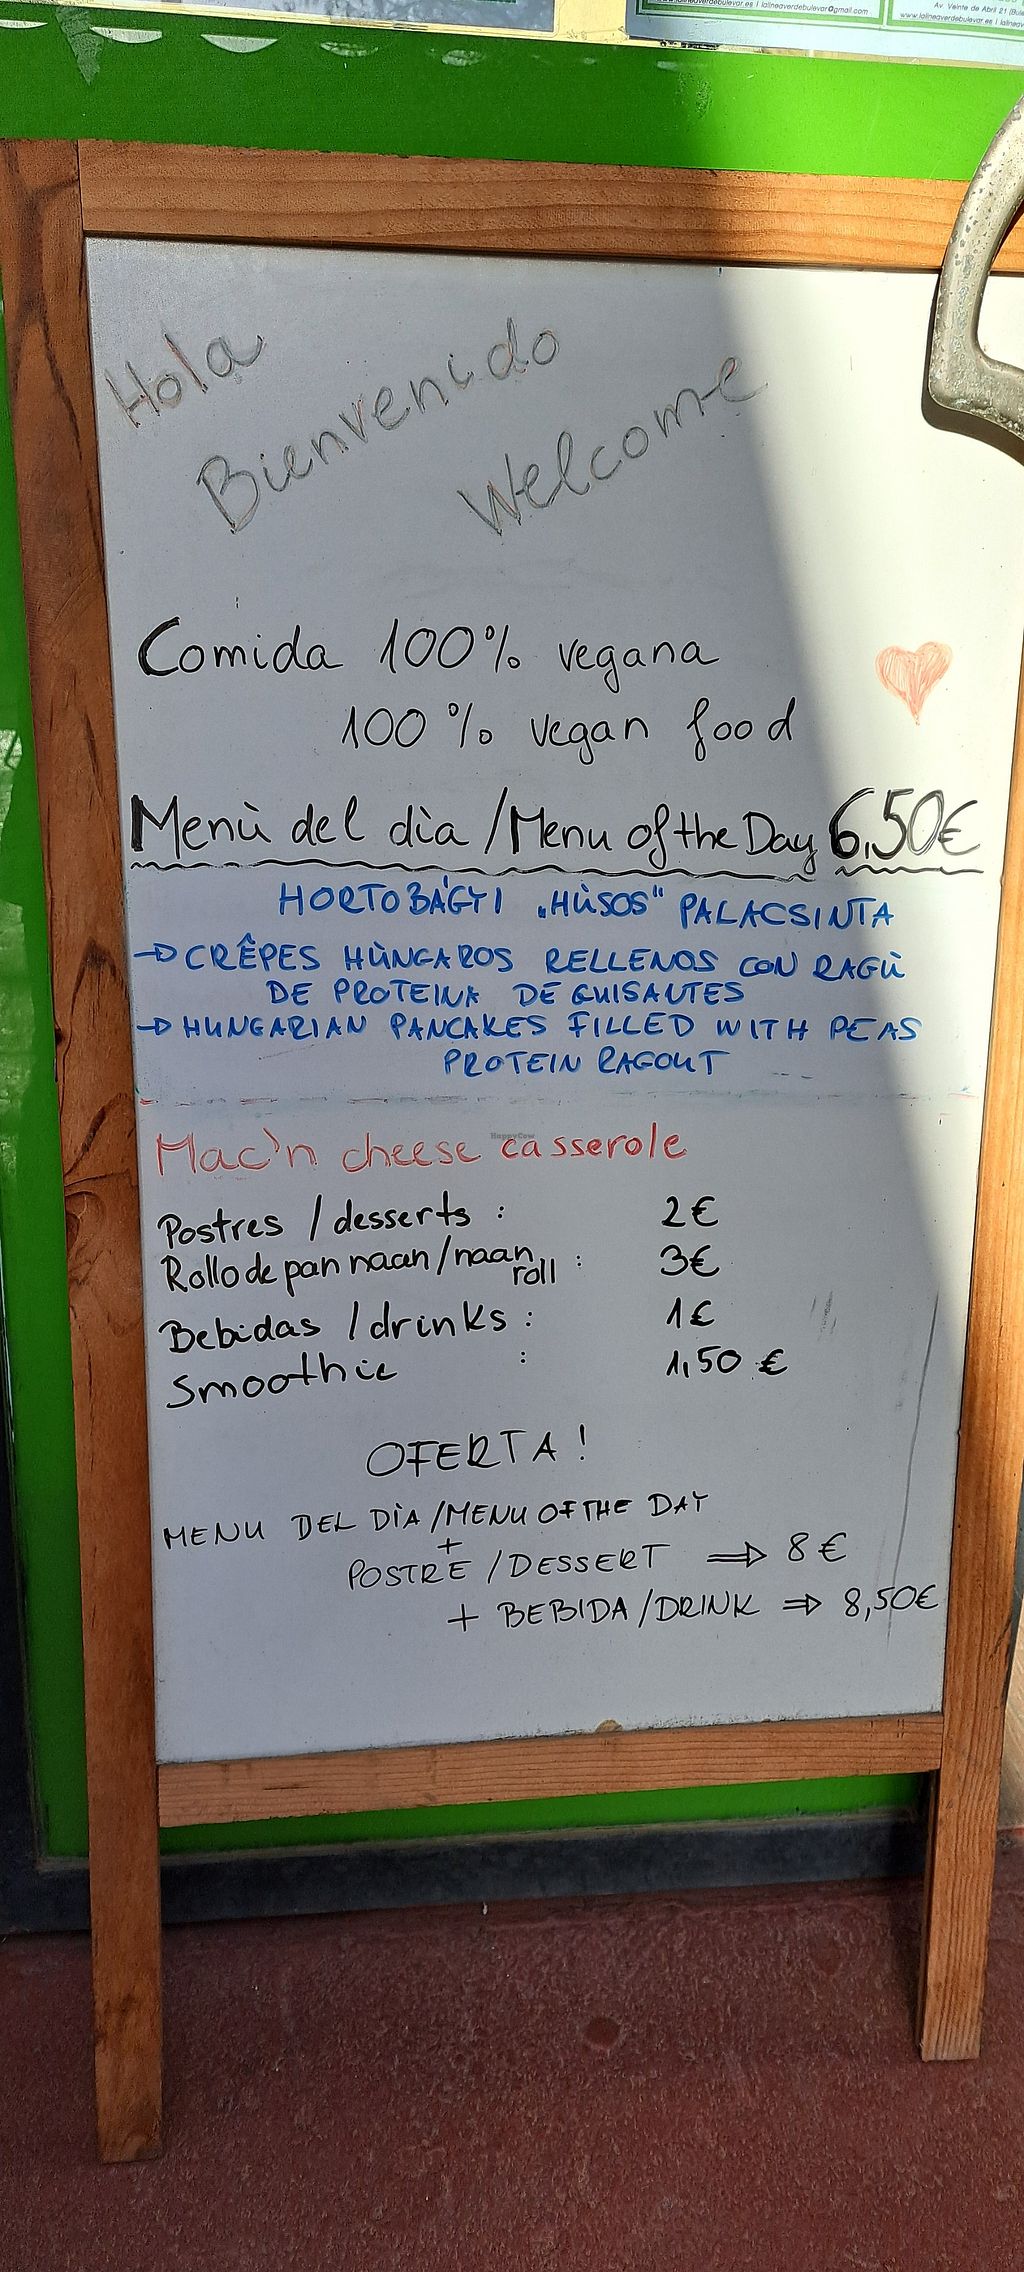 www.lalineaverdebulevar.es | lalineaverdebulevar@gmail.com
Av. Veinte de Abril 21 (Bule
www.lalineaverdebulevar.es | lalineaverdeb
Hola
Bienvenido
Welcome
Comida 100% vegana
100% vegan food
Menù del dìa / Menu of the Day 6,50€
HORTOBÁGYI „HÙSOS" PALACSINTA
→ CRÊPES HÙNGAROS RELLENOS CON RAGÙ
DE PROTEINA DE GUISANTES
→ HUNGARIAN PANCAKES FILLED WITH PEAS
PROTEIN RAGOUT
HappyCow
Mac'n cheese casserole
Postres / desserts : 2€
Rollo de pan naan / naan
roll : 3€
Bebidas / drinks : 1€
Smoothie : 1,50 €
OFERTA!
MENU DEL DÌA / MENU OF THE DAY
+
POSTRE / DESSERT ⇒ 8€
+ BEBIDA / DRINK ⇒ 8,50€